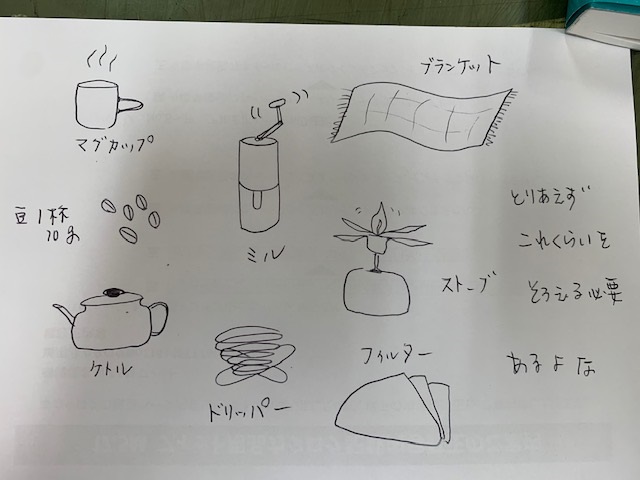 ブランケット
マグカップ
豆1杯
10g
ミル
とりあえず
これくらいを
そろえる必要
あるよな
ストーブ
ケトル
ドリッパー
フィルター